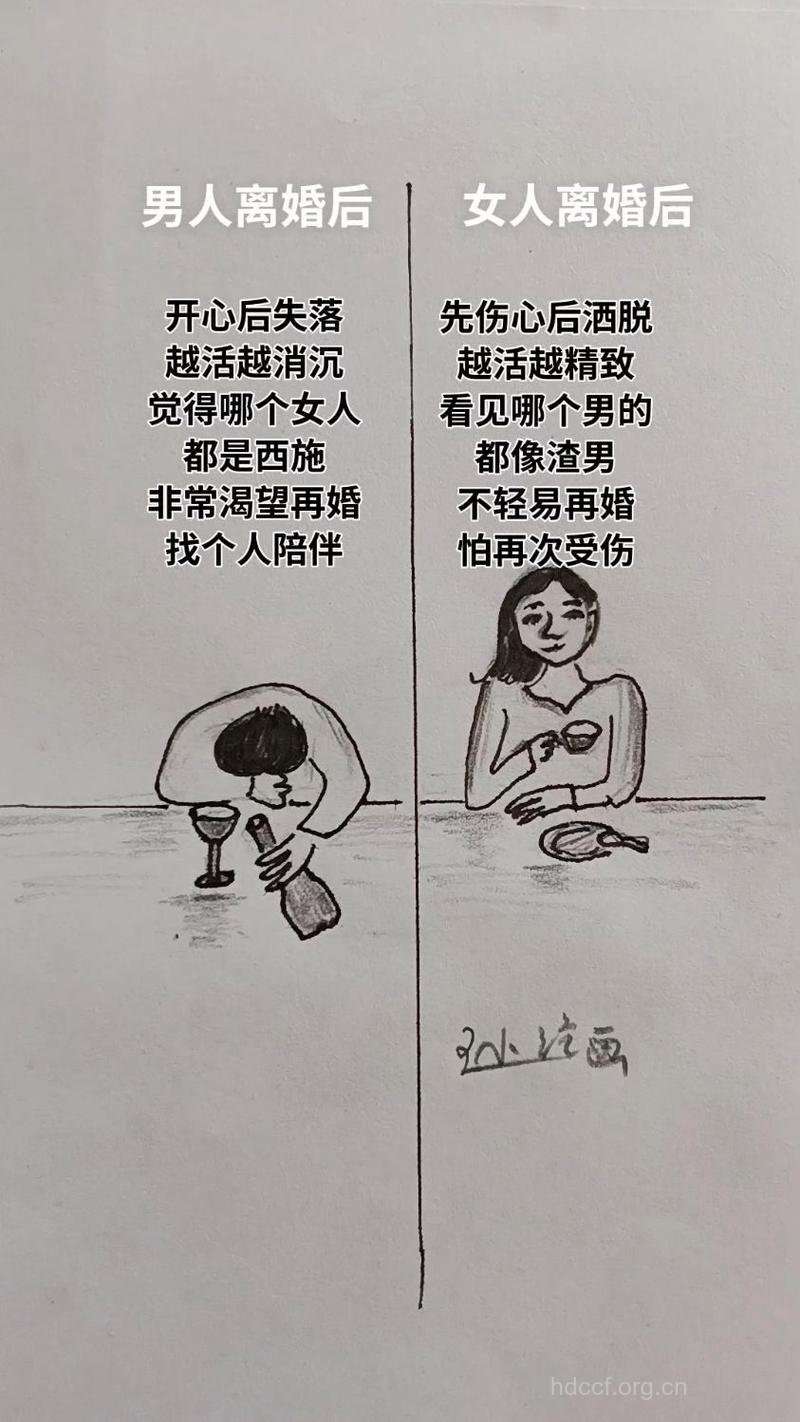 男人离婚后
开心后失落
越活越消沉
觉得哪个女人
都是西施
非常渴望再婚
找个人陪伴
女人离婚后
先伤心后洒脱
越活越精致
看见哪个男的
都像渣男
不轻易再婚
怕再次受伤
画
hdccf.org.cn